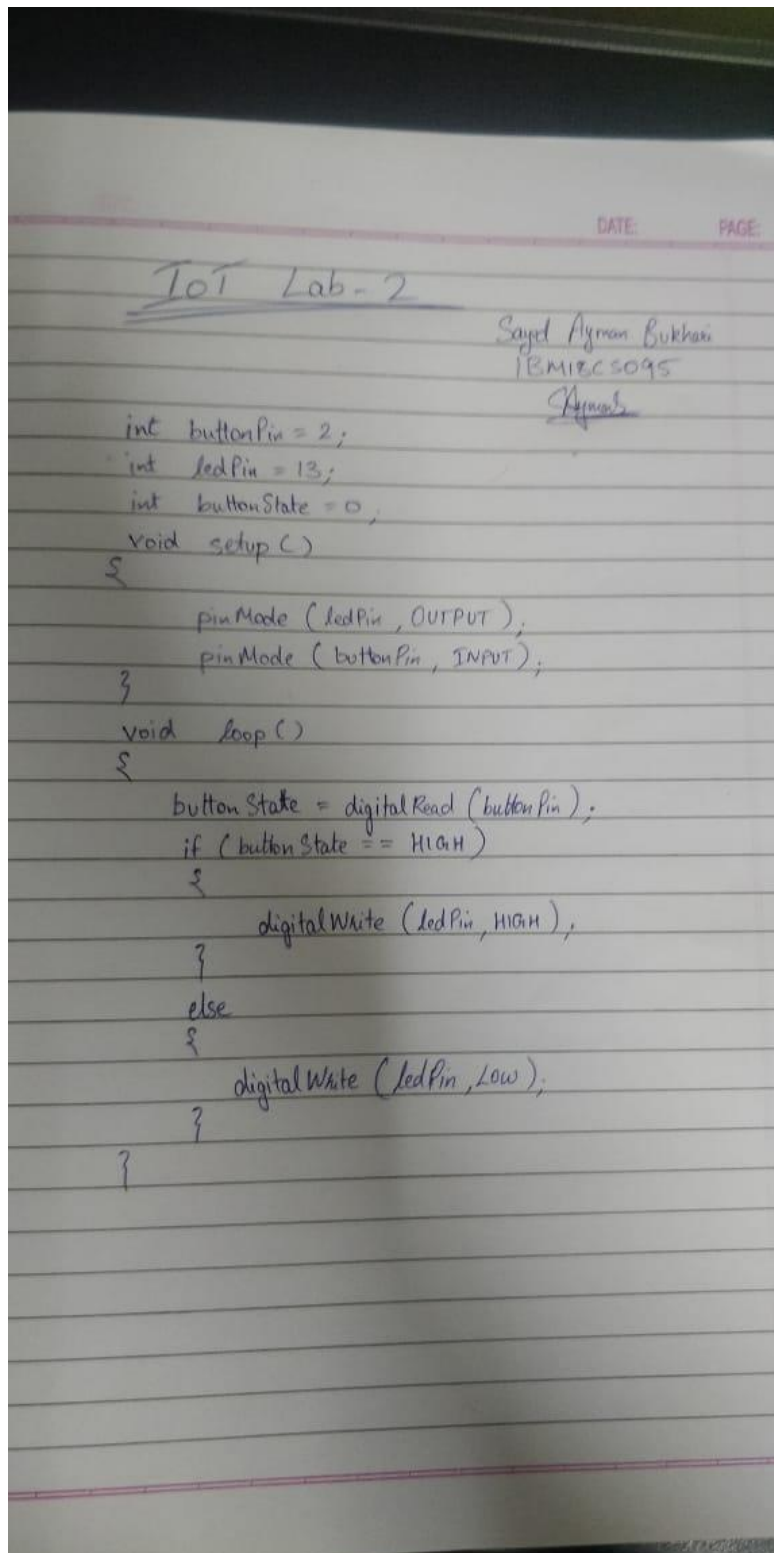 DATE: PAGE:
IoT Lab-2
Sayed Ayman Bukhari
1BM18CS095
SAyman
int buttonPin = 2;
int ledPin = 13;
int buttonState = 0;
void setup()
{
pinMode (ledPin, OUTPUT);
pinMode (buttonPin, INPUT);
}
void loop()
{
buttonState = digitalRead (buttonPin);
if (buttonState == HIGH)
{
digitalWrite (ledPin, HIGH);
}
else
{
digitalWrite (ledPin, LOW);
}
}